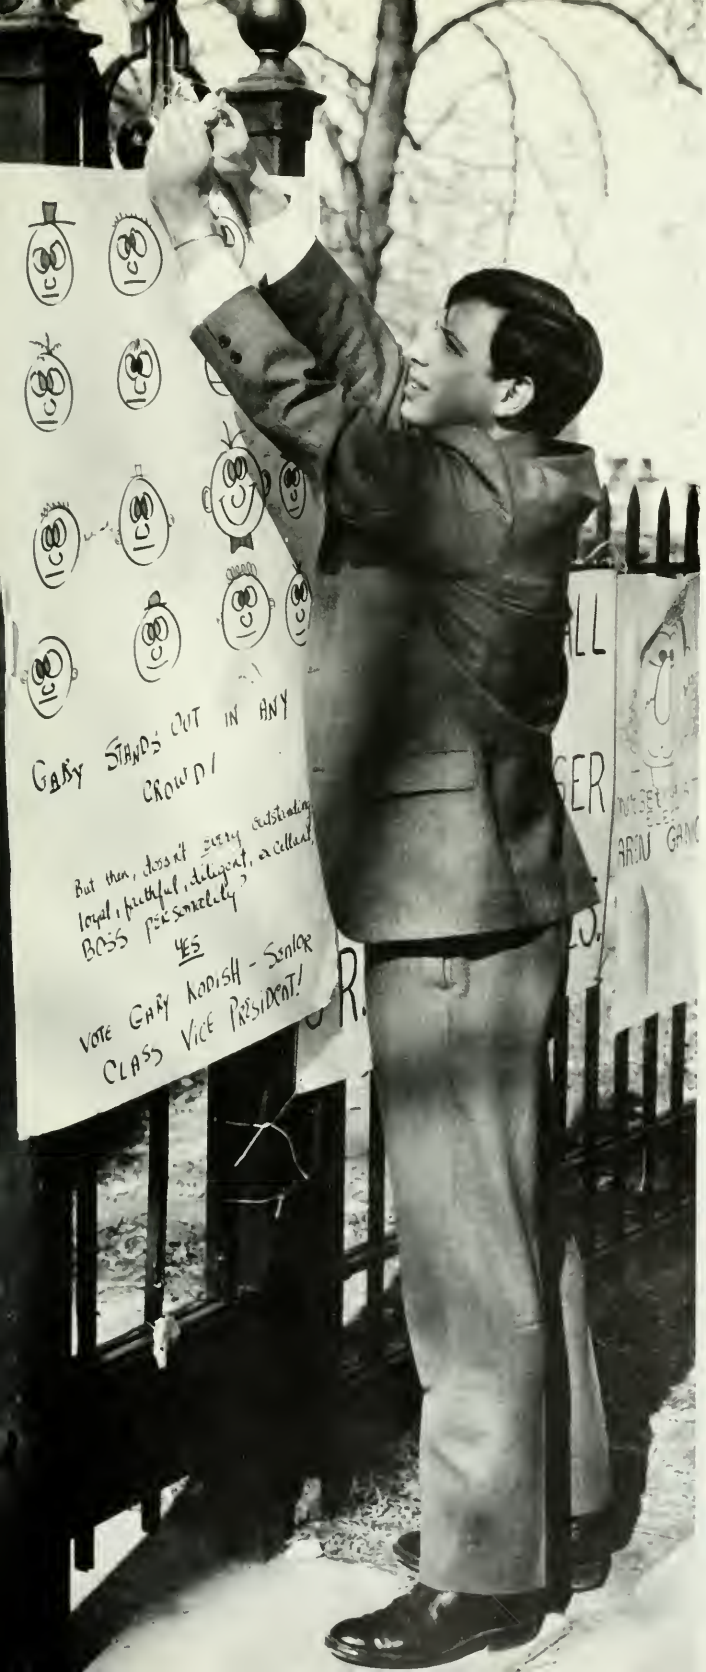 GARY STANDS OUT IN ANY
CROWD!
But then, doesn't every outstanding
loyal, faithful, diligent, excellant,
BOSS personality?
YES
VOTE GARY KODISH - SENIOR
CLASS VICE PRESIDENT!
ALL
GER
S.
R.